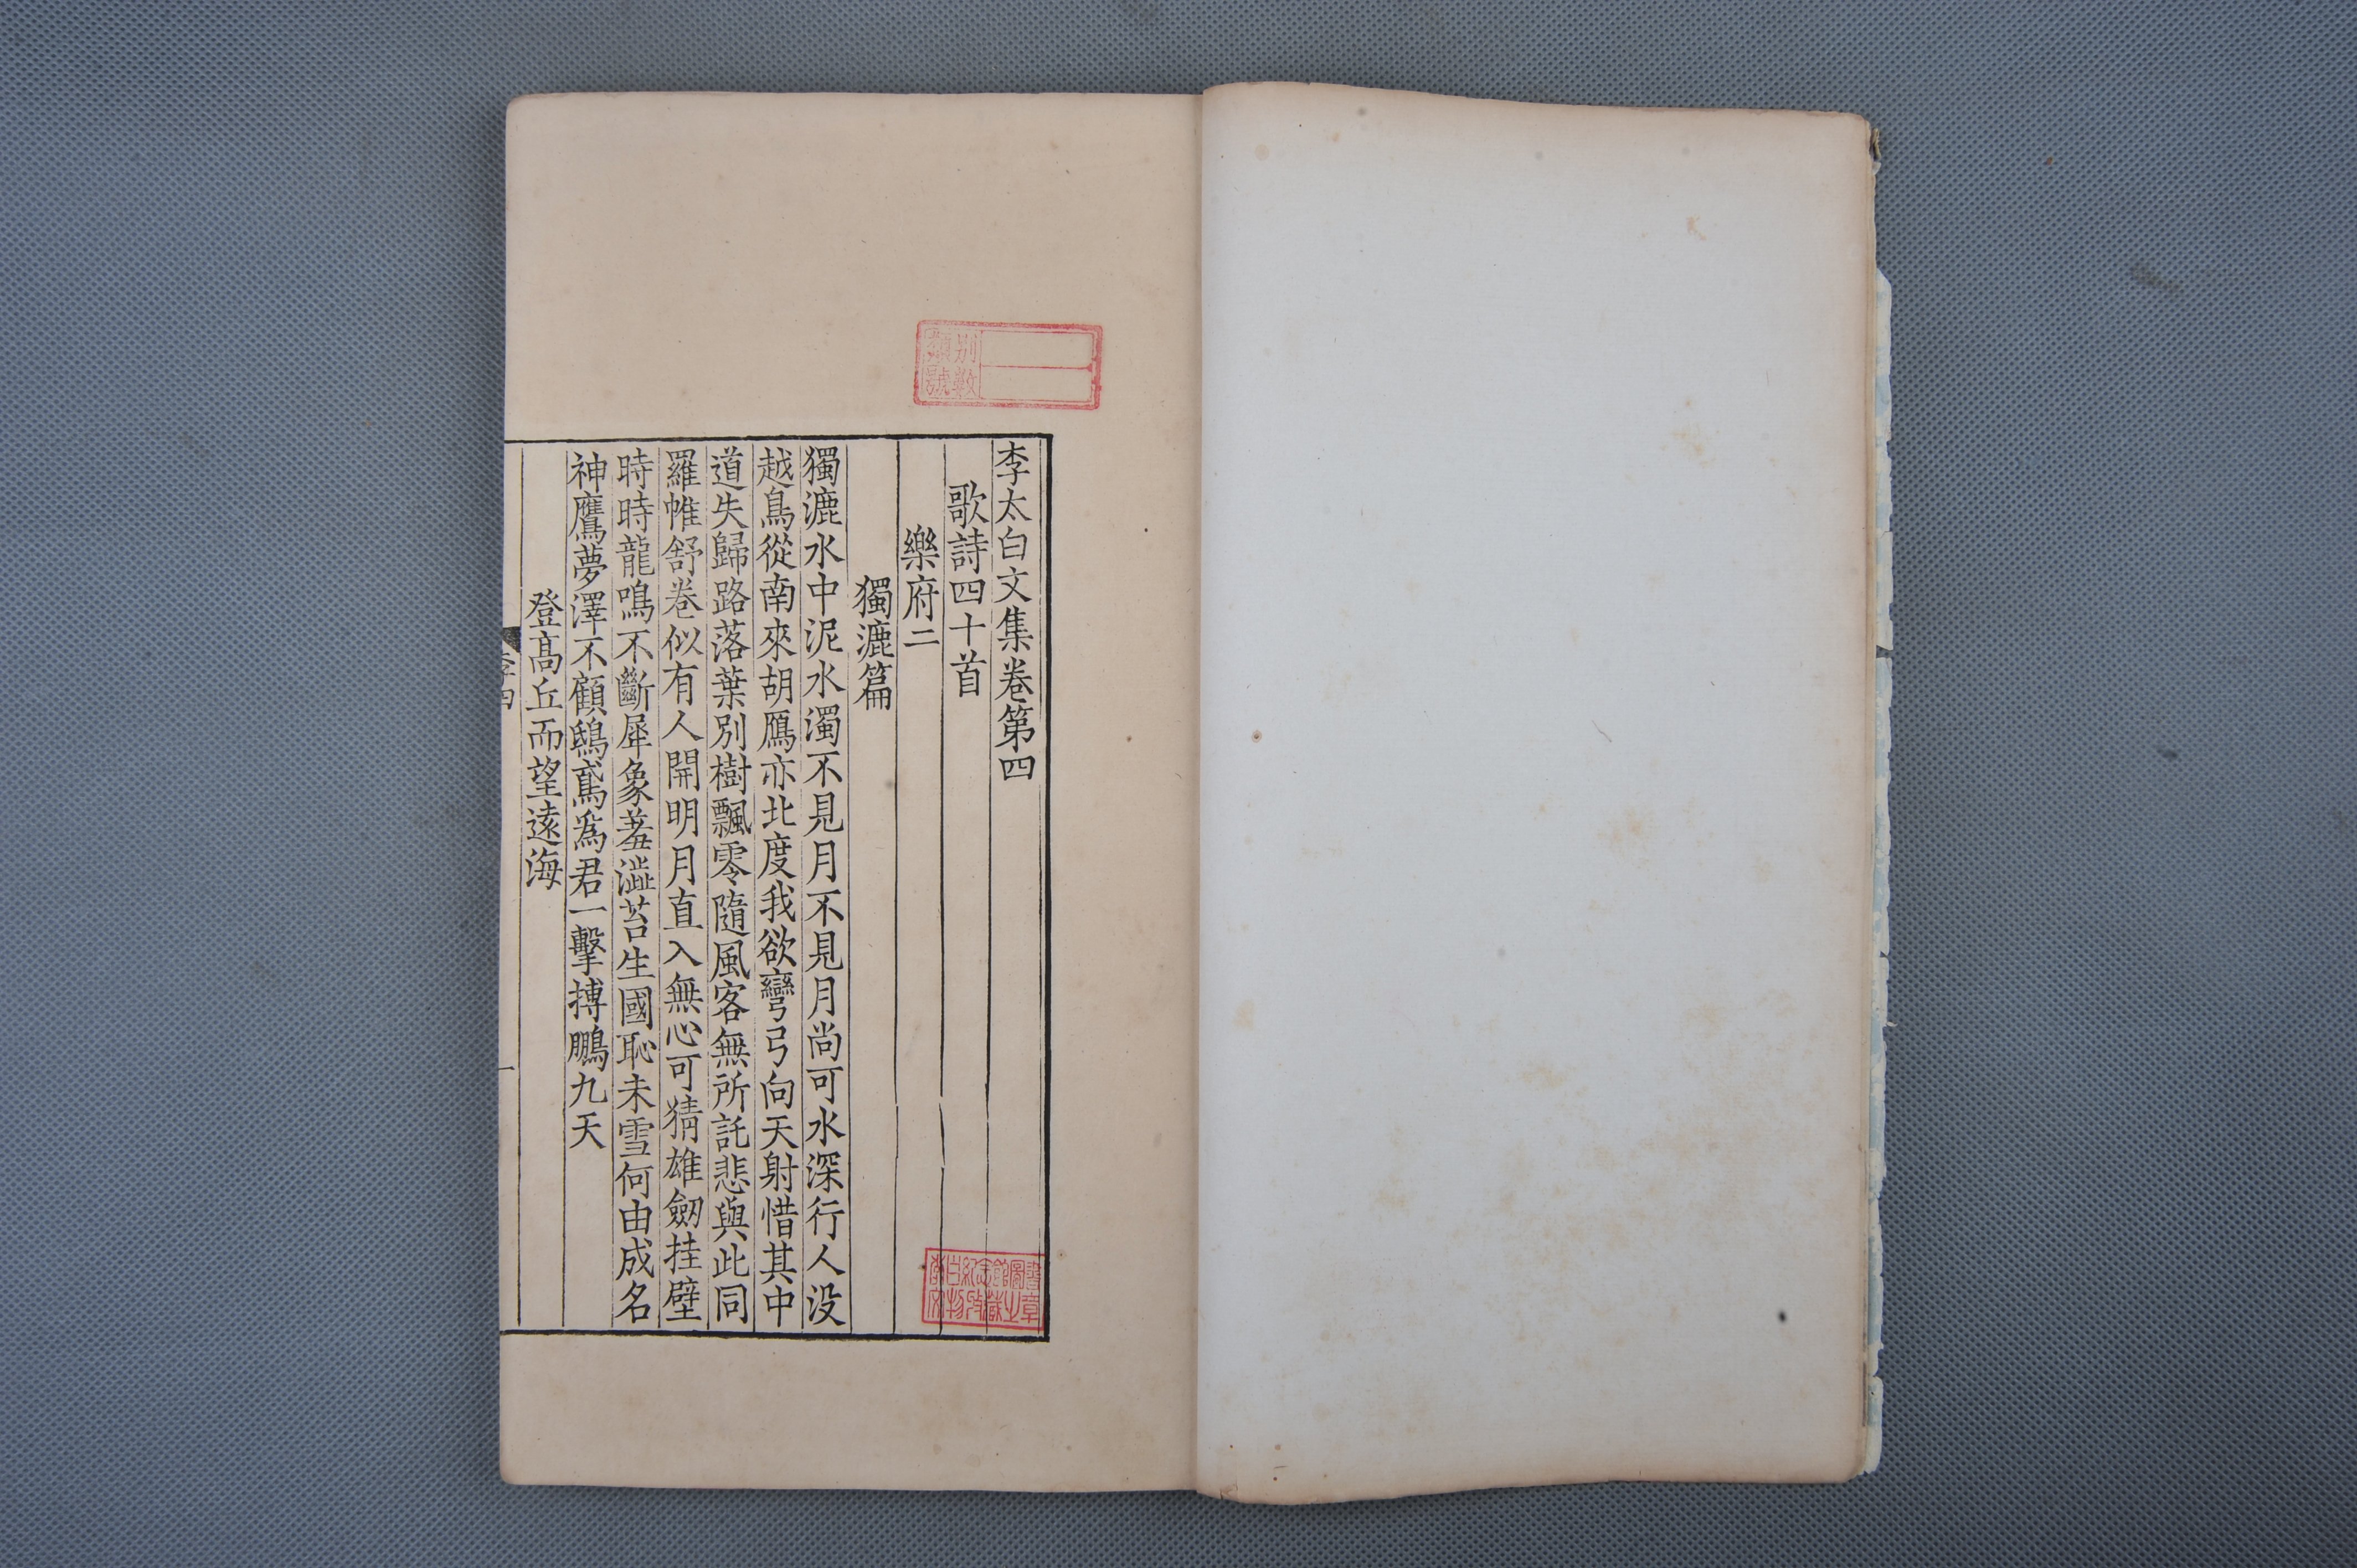 李太白文集卷第四
歌詩四十首
樂府二
獨漉篇
獨漉水中泥水濁不見月不見月尚可水深行人没
越鳥從南來胡鴈亦北度我欲彎弓向天射惜其中
道失歸路落葉別樹飄零隨風客無所託悲與此同
羅帷舒卷似有人開明月直入無心可猜雄劒挂壁
時時龍鳴不斷犀象羞澁苔生國恥未雪何由成名
神鷹夢澤不顧鴟鳶爲君一擊搏鵬九天
登高丘而望遠海
李四
一
別數
類號
書章
圖之
館藏
念收
紀
白物
李文